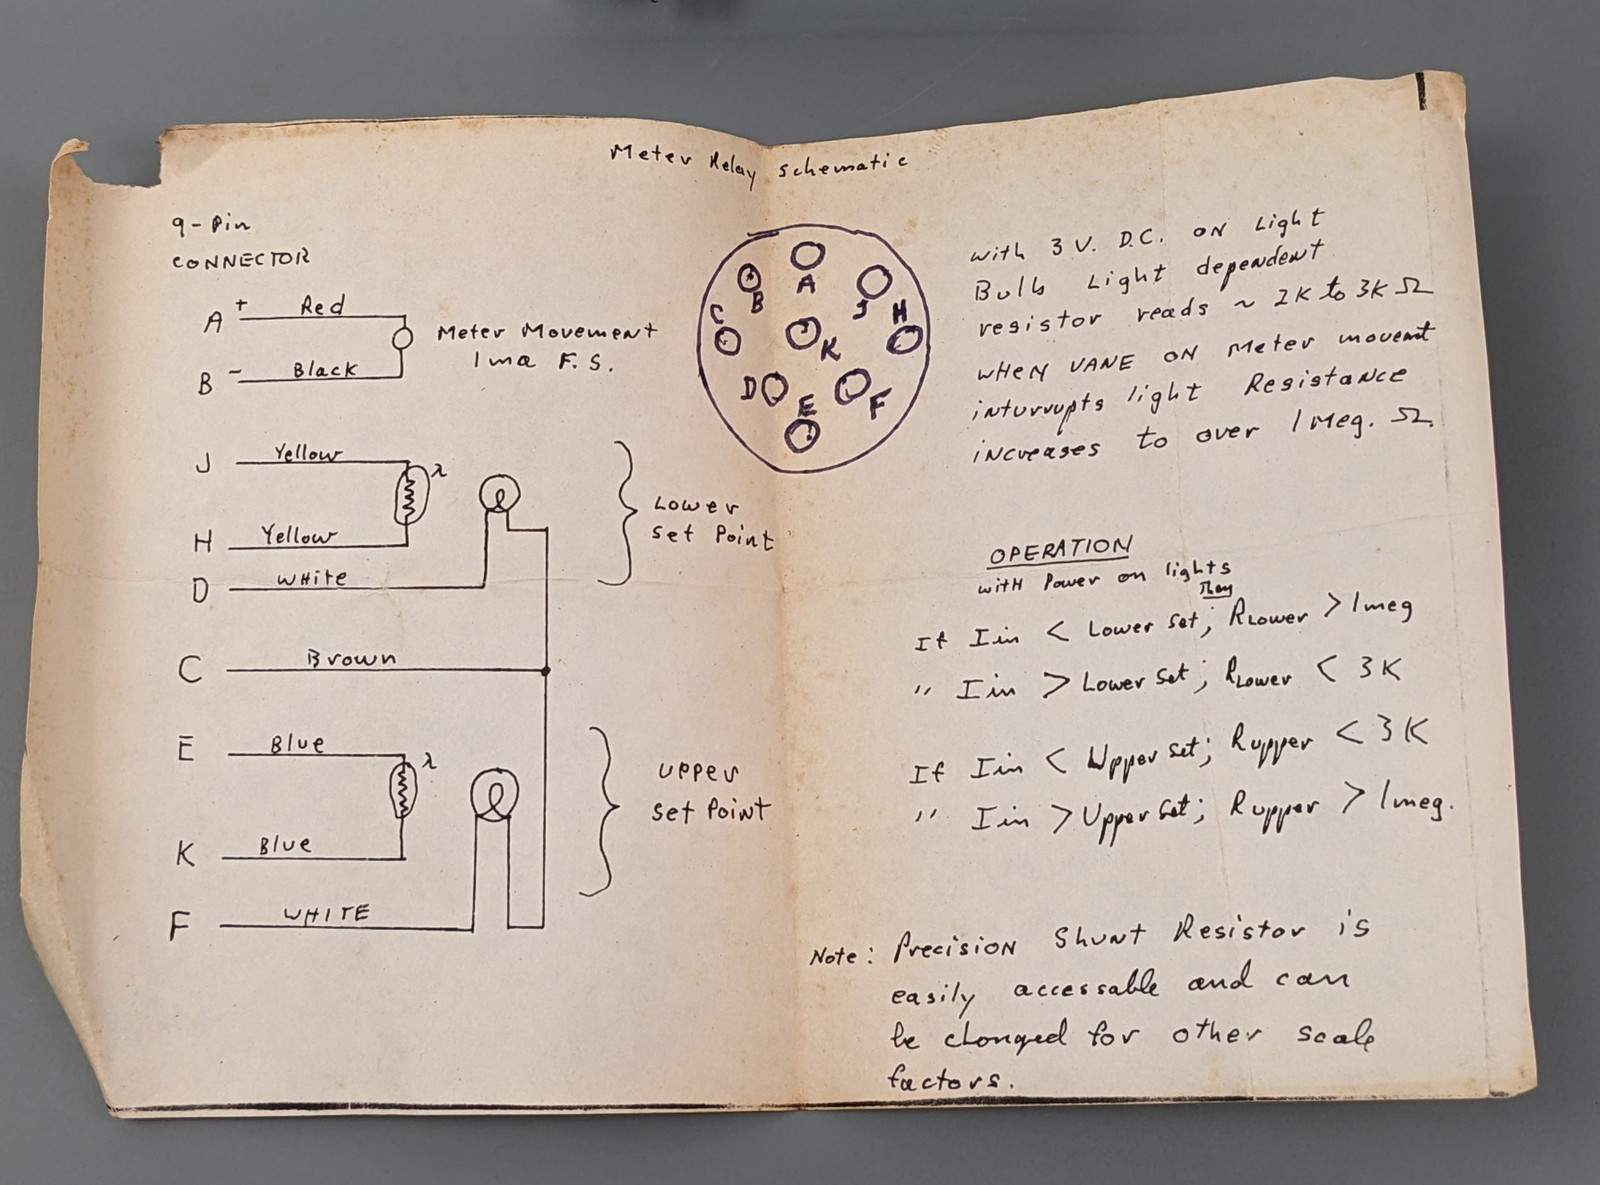 Meter Relay Schematic
9-Pin
CONNECTOR
A + Red
B - Black
Meter Movement
1ma F.S.
J Yellow
λ
H Yellow
D WHite
Lower
Set Point
C Brown
E Blue
λ
K Blue
F WHITE
Upper
Set Point
A
B
J
C
H
K
D
E
F
with 3 V. D.C. ON Light
Bulb Light dependent
resistor reads ~ 2K to 3K Ω
WHEN VANE ON Meter movemt
inturrupts light Resistance
iNcreases to over 1 Meg. Ω
OPERATION
witH Power on lights
Then
If Iin < Lower Set; RLower > 1meg
" Iin > Lower Set; RLower < 3K
If Iin < Upper Set; Rupper < 3K
" Iin > Upper Set; Rupper > 1meg.
Note: Precision Shunt Resistor is
easily accessable and can
be changed for other scale
factors.